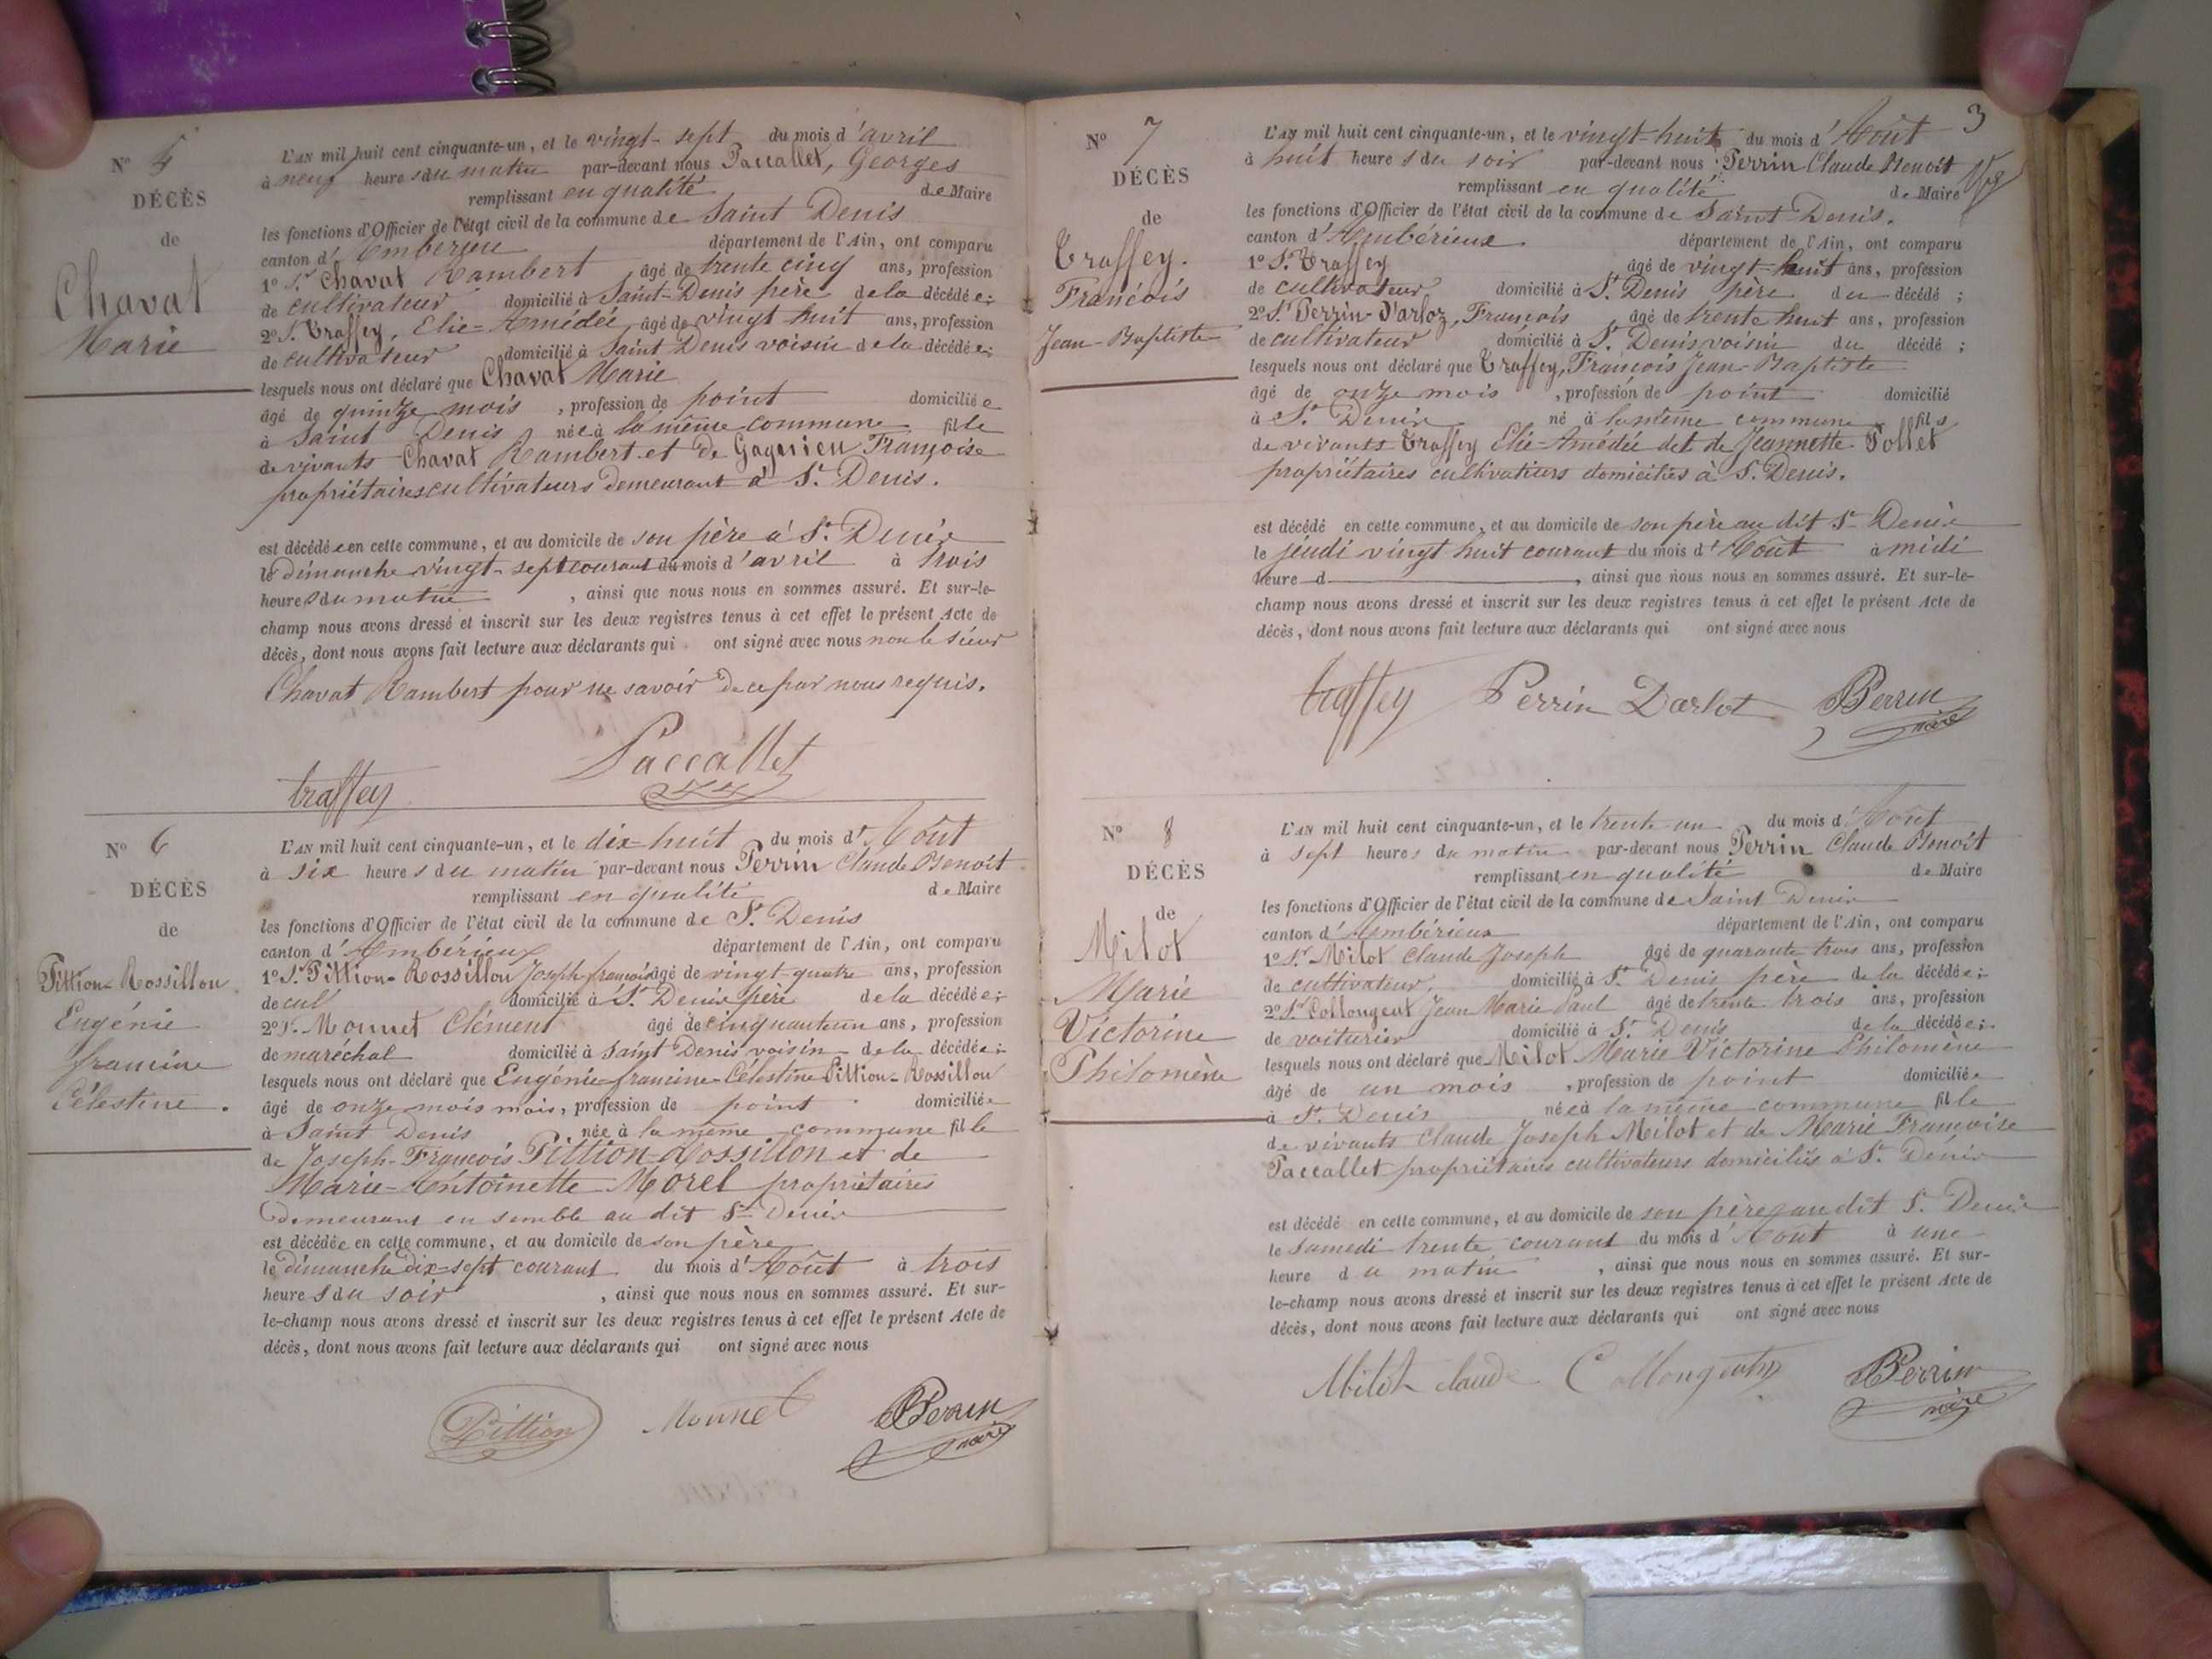 N° 5
DÉCÈS
de
Chavat
Marie
L'AN mil huit cent cinquante-un, et le vingt-sept du mois d'avril
à neuf heures du matin par-devant nous Paccallet, Georges
remplissant en qualité de Maire
les fonctions d'Officier de l'état civil de la commune de Saint Denis
canton d'Ambérieu département de l'Ain, ont comparu
1° Sr. Chavat Rambert âgé de trente cinq ans, profession
de cultivateur domicilié à Saint-Denis père de la décédée;
2° S. Traffey, Elie-Amédée, âgé de vingt huit ans, profession
de cultivateur domicilié à Saint Denis voisin de la décédée;
lesquels nous ont déclaré que Chavat Marie
âgé de quinze mois, profession de point domiciliée
à Saint Denis née à la même commune fille
de vivants Chavat Rambert et de Françoise
propriétaires cultivateurs demeurant à St. Denis.
est décédée en cette commune, et au domicile de son père à St. Denis
le dimanche vingt-sept courant du mois d'avril à trois
heures du matin, ainsi que nous nous en sommes assuré. Et sur-le-
champ nous avons dressé et inscrit sur les deux registres tenus à cet effet le présent Acte de
décès, dont nous avons fait lecture aux déclarants qui ont signé avec nous non le sieur
Chavat Rambert pour ne savoir de ce par nous requis.
Paccallet
traffey
N° 6
DÉCÈS
de
Pittion-Rossillon
Eugénie
francine
Célestine.
L'AN mil huit cent cinquante-un, et le dix-huit du mois d'Août
à six heures du matin par-devant nous Perrin Claude Benoit
remplissant en qualité de Maire
les fonctions d'Officier de l'état civil de la commune de St. Denis
canton d'Ambérieux département de l'Ain, ont comparu
1° Sr. Pittion-Rossillon Joseph françois âgé de vingt-quatre ans, profession
de cult domicilié à St. Denis père de la décédée;
2° S. Monnet Clément âgé de cinquanteun ans, profession
de maréchal domicilié à Saint Denis voisin de la décédée;
lesquels nous ont déclaré que Eugénie-francine-Célestine Pittion-Rossillon
âgé de onze mois mois, profession de point domiciliée
à Saint Denis née à la même commune fille
de Joseph-François Pittion-Rossillon et de
Marie-Antoinette Morel propriétaires
demeurant ensemble au dit St. Denis
est décédée en cette commune, et au domicile de son père
le dimanche dix-sept courant du mois d'Août à trois
heures du soir, ainsi que nous nous en sommes assuré. Et sur-
le-champ nous avons dressé et inscrit sur les deux registres tenus à cet effet le présent Acte de
décès, dont nous avons fait lecture aux déclarants qui ont signé avec nous
Pittion Monnet Perrin
maire
3
N° 7
DÉCÈS
de
Traffey.
François
Jean-Baptiste
L'AN mil huit cent cinquante-un, et le vingt-huit du mois d'Août
à huit heures du soir par-devant nous Perrin Claude Benoit
remplissant en qualité de Maire
les fonctions d'Officier de l'état civil de la commune de Saint Denis.
canton d'Ambérieux département de l'Ain, ont comparu
1° Sr. Traffey âgé de vingt-huit ans, profession
de cultivateur domicilié à St. Denis père du décédé;
2° Sr Perrin-Darloz, François âgé de trente huit ans, profession
de cultivateur domicilié à St. Denis voisin du décédé;
lesquels nous ont déclaré que Traffey, François Jean-Baptiste
âgé de onze mois, profession de point domicilié
à St. Denis né à la même commune fils
de vivants Traffey Elie-Amédée et de Jeannette Tollet
propriétaires cultivateurs domiciliés à St. Denis.
est décédé en cette commune, et au domicile de son père au dit St Denis
le jeudi vingt huit courant du mois d'Août à midi
heure d, ainsi que nous nous en sommes assuré. Et sur-le-
champ nous avons dressé et inscrit sur les deux registres tenus à cet effet le présent Acte de
décès, dont nous avons fait lecture aux déclarants qui ont signé avec nous
traffey Perrin Darlot Perrin
maire
N° 8
DÉCÈS
de
Milot
Marie
Victorine
Philomène
L'AN mil huit cent cinquante-un, et le trente-un du mois d'Août
à sept heures du matin par-devant nous Perrin Claude Benoit
remplissant en qualité de Maire
les fonctions d'Officier de l'état civil de la commune de Saint Denis
canton d'Ambérieux département de l'Ain, ont comparu
1° Sr. Milot Claude Joseph âgé de quarante trois ans, profession
de cultivateur, domicilié à St. Denis père de la décédée;
2° Sr Collongeat Jean Marie Paul âgé de trente trois ans, profession
de voiturier domicilié à St. Denis de la décédée;
lesquels nous ont déclaré que Milot Marie Victorine Philomène
âgé de un mois, profession de point domiciliée
à St. Denis née à la même commune fille
de vivants Claude Joseph Milot et de Marie Françoise
Paccallet propriétaires cultivateurs domiciliés à St. Denis
est décédé en cette commune, et au domicile de son père au dit St. Denis
le Samedi trente courant du mois d'Août à une
heure du matin, ainsi que nous nous en sommes assuré. Et sur-
le-champ nous avons dressé et inscrit sur les deux registres tenus à cet effet le présent Acte de
décès, dont nous avons fait lecture aux déclarants qui ont signé avec nous
Milot claude Perrin
maire